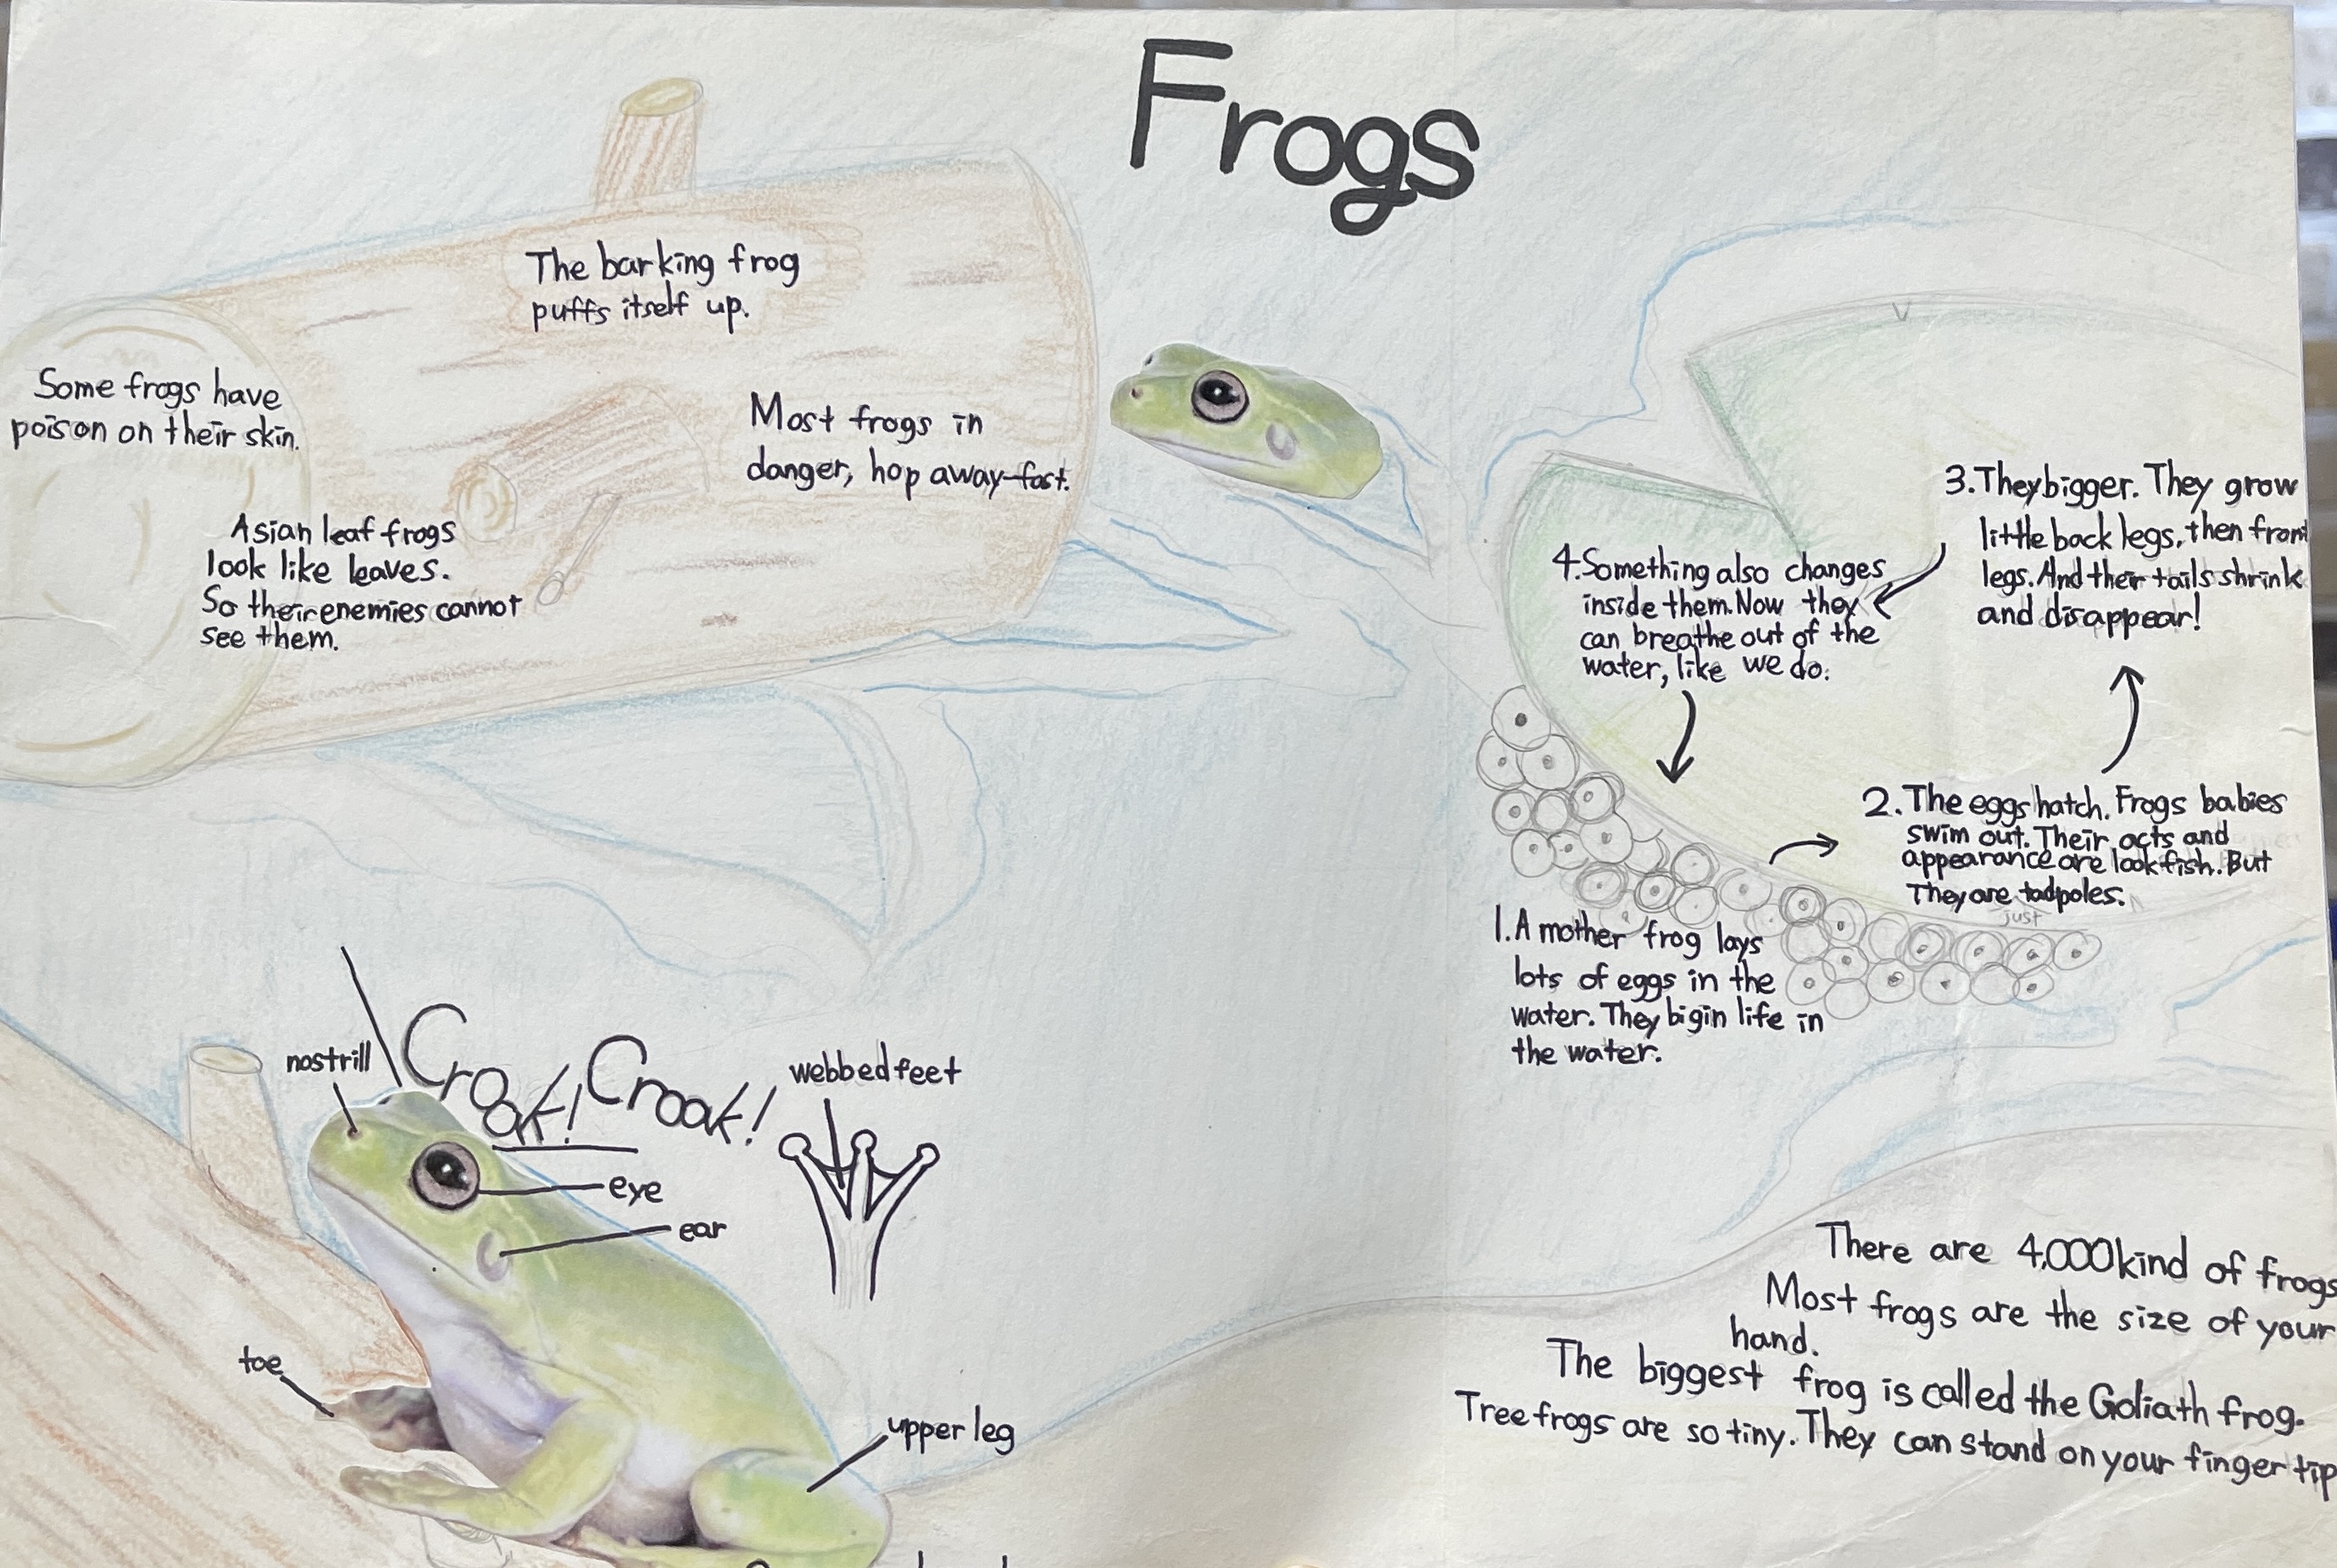 Frogs
The barking frog
puffs itself up.
Some frogs have
poison on their skin.
Most frogs in
danger, hop away-fast.
Asian leaf frogs
look like leaves.
So their enemies cannot
see them.
3.They bigger. They grow
little back legs, then front
legs. And their tails shrink
and disappear!
4.Something also changes
inside them. Now they
can breathe out of the
water, like we do.
2. The eggs hatch. Frogs babies
swim out. Their acts and
appearance are look fish. But
They are tadpoles.
just
1.A mother frog lays
lots of eggs in the
water. They bigin life in
the water.
Croak! Croak!
nostrill
webbed feet
eye
ear
toe
upper leg
There are 4,000 kind of frogs
Most frogs are the size of your
hand.
The biggest frog is called the Goliath frog.
Tree frogs are so tiny. They can stand on your finger tip